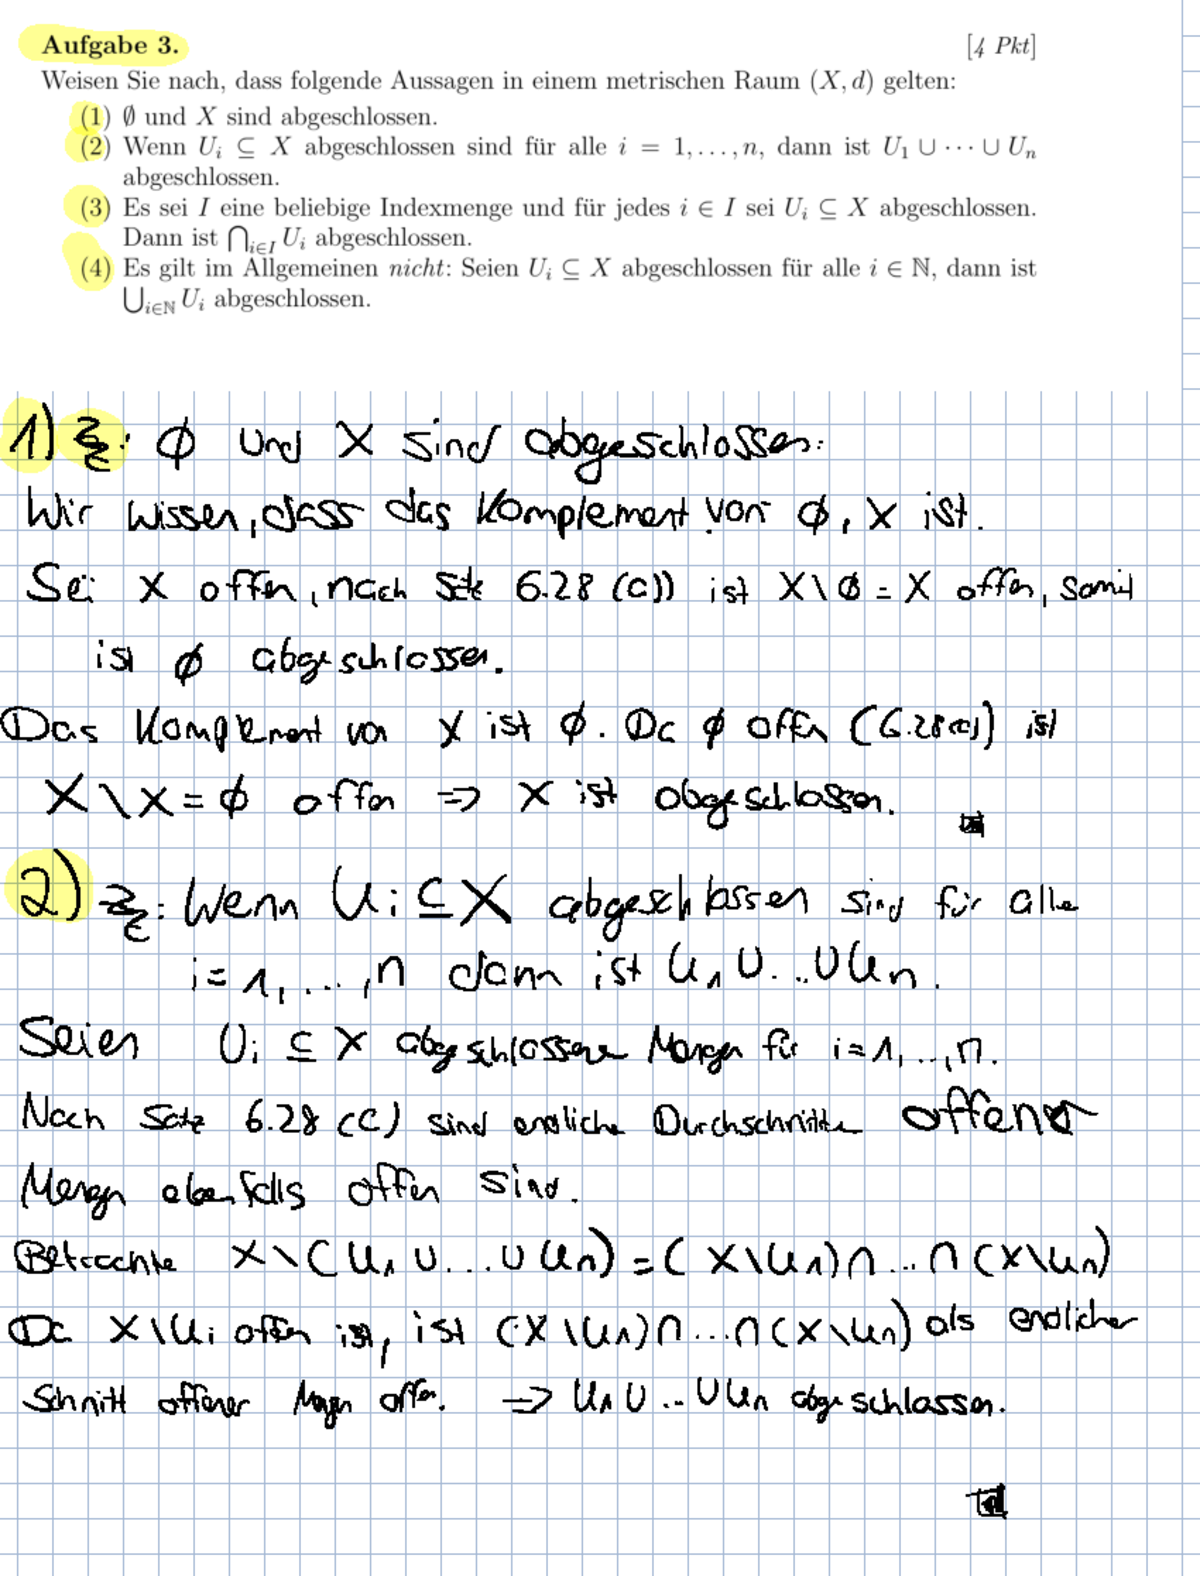 Aufgabe 3. [4 Pkt]
Weisen Sie nach, dass folgende Aussagen in einem metrischen Raum (X, d) gelten:
(1) ∅ und X sind abgeschlossen.
(2) Wenn Uᵢ ⊆ X abgeschlossen sind für alle i = 1, . . . , n, dann ist U₁ ∪ ⋯ ∪ Uₙ
abgeschlossen.
(3) Es sei I eine beliebige Indexmenge und für jedes i ∈ I sei Uᵢ ⊆ X abgeschlossen.
Dann ist ⋂_{i∈I} Uᵢ abgeschlossen.
(4) Es gilt im Allgemeinen nicht: Seien Uᵢ ⊆ X abgeschlossen für alle i ∈ ℕ, dann ist
⋃_{i∈ℕ} Uᵢ abgeschlossen.
1) zz: ∅ und X sind abgeschlossen:
Wir wissen, dass das Komplement von ∅, X ist.
Sei X offen, nach Satz 6.28 (c)) ist X\∅ = X offen, somit
ist ∅ abgeschlossen.
Das Komplement von X ist ∅. Da ∅ offen (6.28(c)) ist
X\X = ∅ offen => X ist abgeschlossen.
2) zz: Wenn Uᵢ ⊆ X abgeschlossen sind für alle
i = 1, ..., n dann ist U₁ ∪...∪ Uₙ.
Seien Uᵢ ⊆ X abgeschlossene Mengen für i = 1, ..., n.
Nach Satz 6.28 (c) sind endliche Durchschnitte offener
Mengen ebenfalls offen sind.
Betrachte X\(U₁ ∪ ... ∪ Uₙ) = (X\U₁) ∩ ... ∩ (X\Uₙ)
Da X\Uᵢ offen ist, ist (X\U₁) ∩ ... ∩ (X\Uₙ) als endlicher
Schnitt offener Mengen offen. => U₁ ∪ .. ∪ Uₙ abgeschlossen.